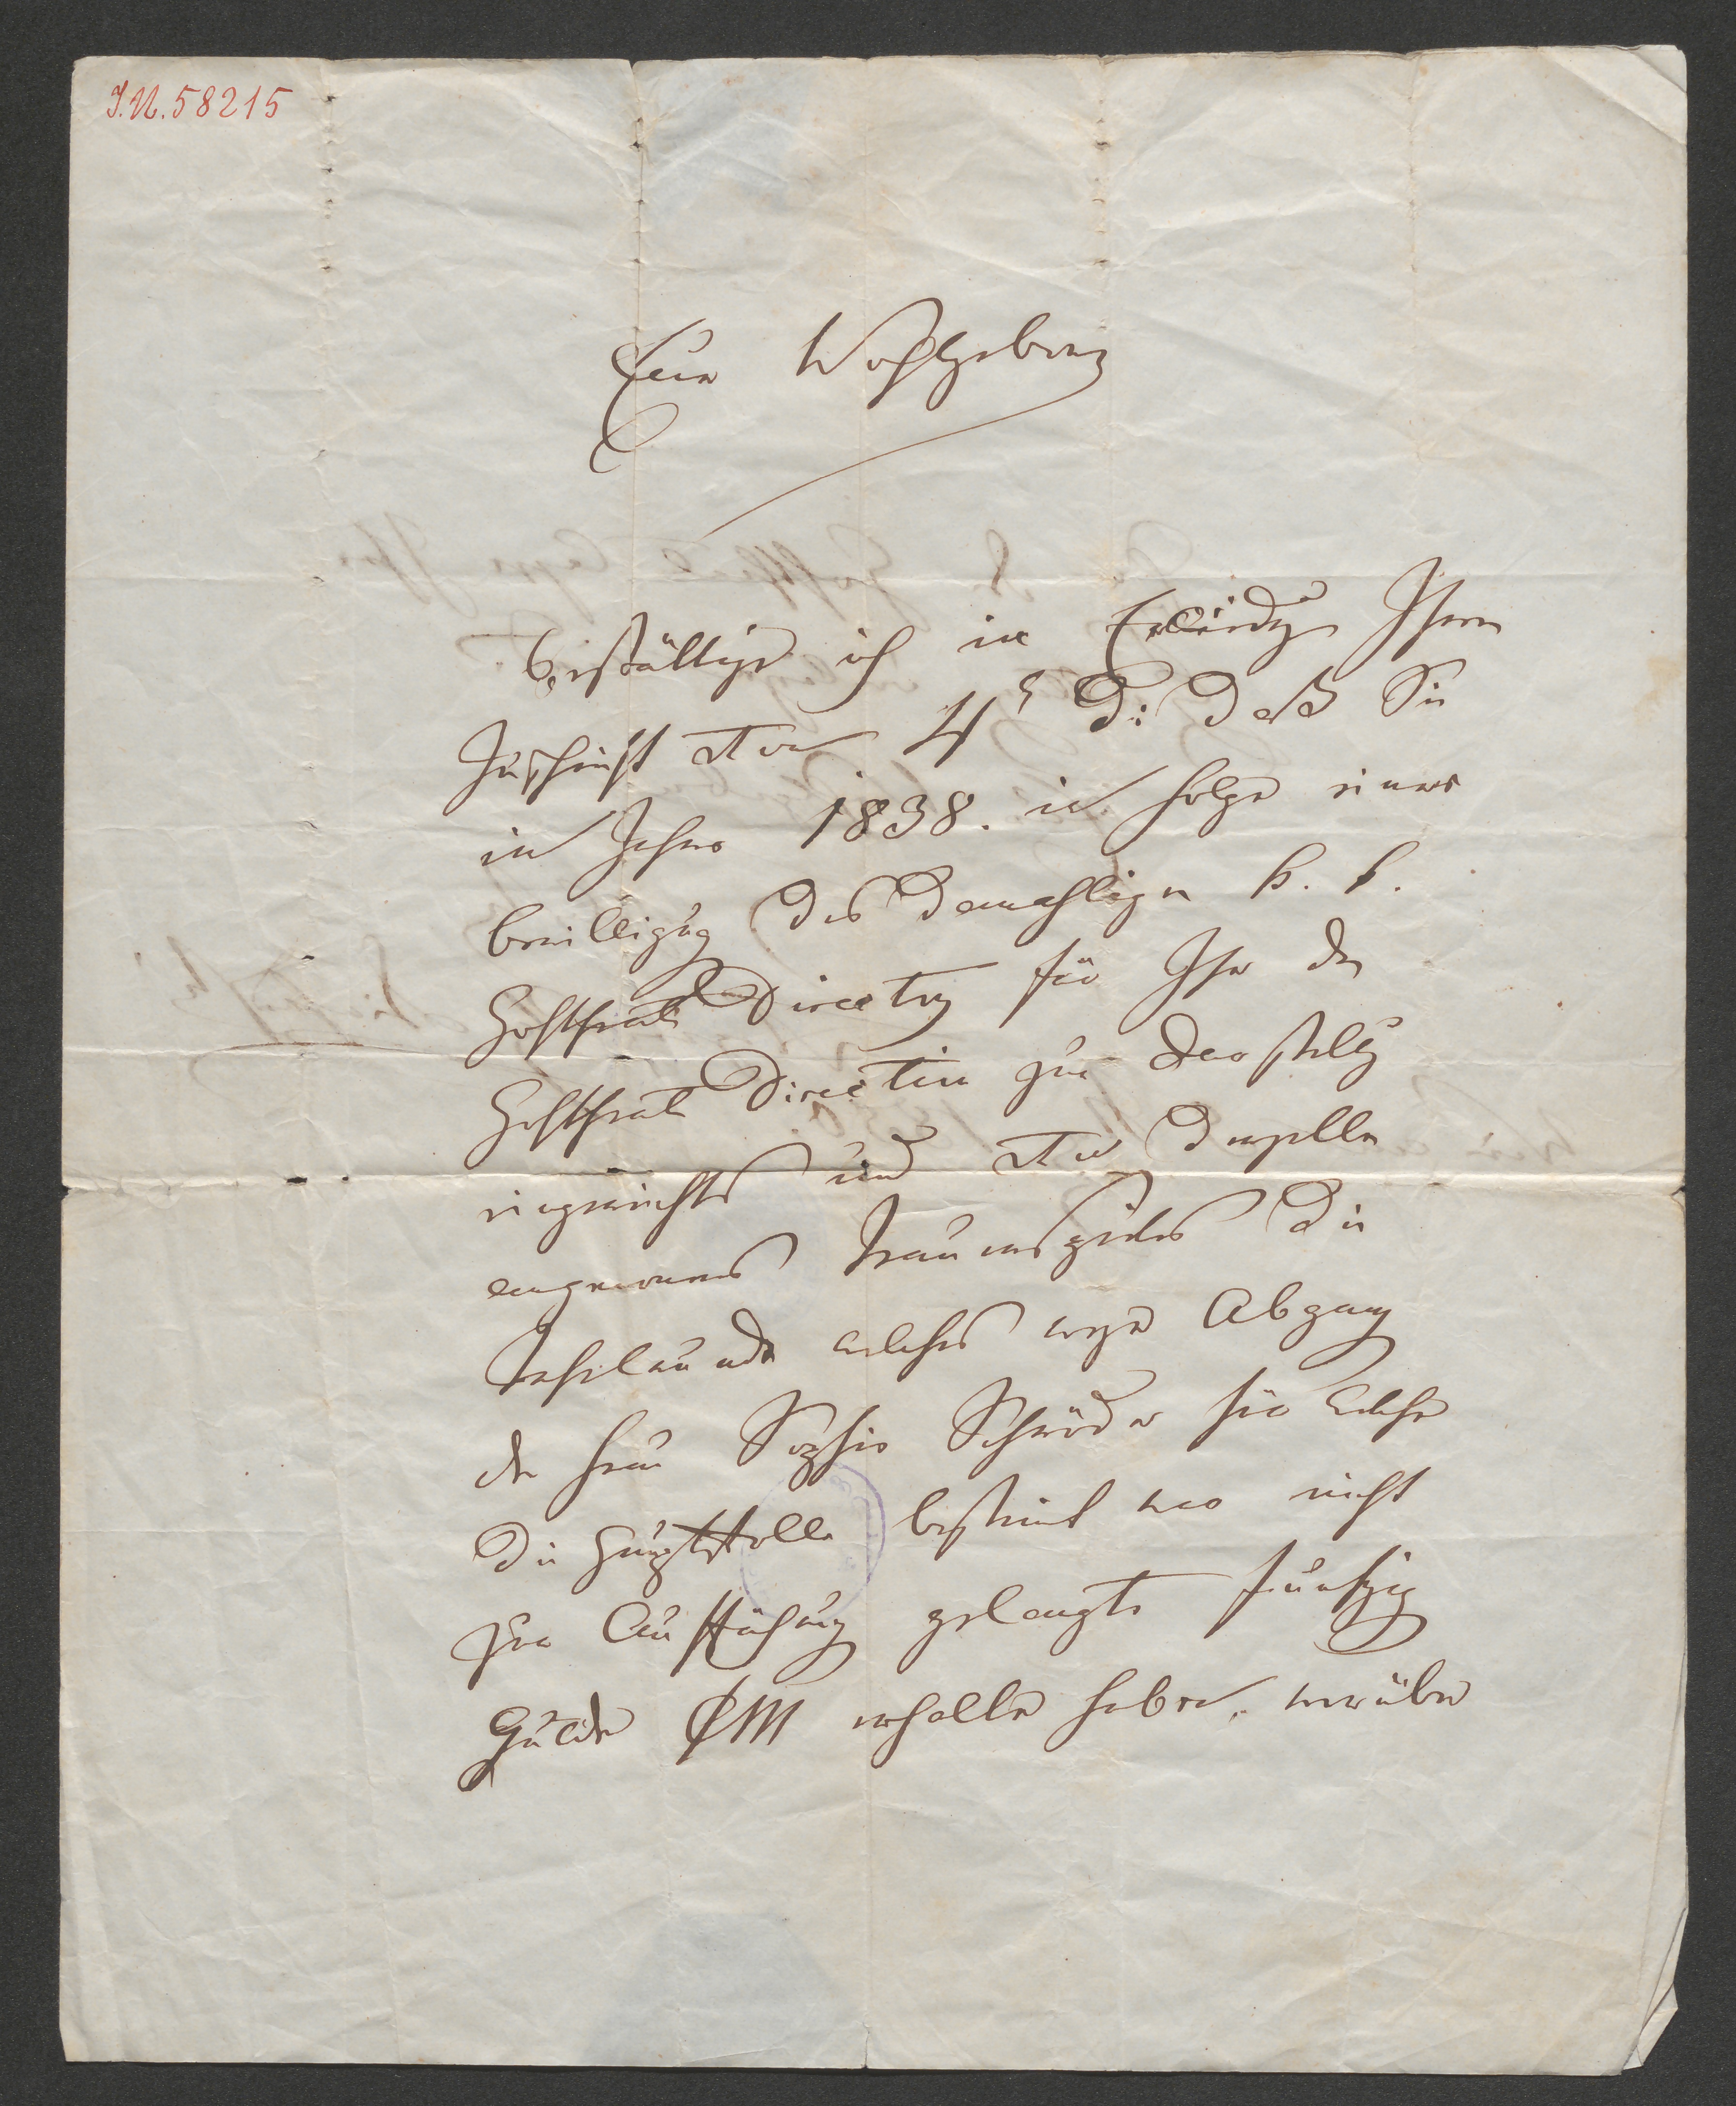 I.N. 58215
Euer Wohlgeboren
bestättige ich in Erledigung Ihrer
Zuschrift vom 4t d: daß Sie
im Jahre 1838. in Folge einer
bewilligung des damahligen k. k.
Hoftheater Directors für Ihr der
Hoftheater Direction zur Darstellung
eingereichtes und von derselben
angenommenes Trauerspieles die
welches wegen Abgang
der Frau Sophie Schröder für welche
die Hauptrolle bestimt war nicht
zur Aufführung gelangte fünfzig
Gulden CM erhalten haben. worüber